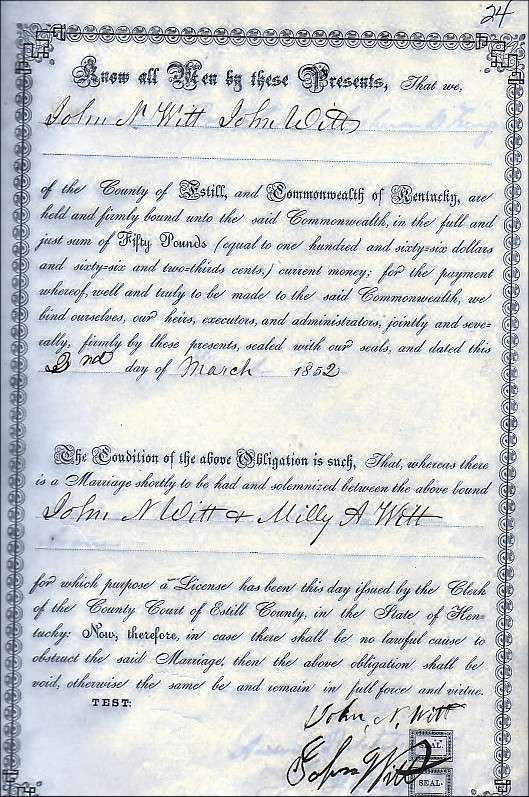 24
Know all Men by these Presents, That we,
John N Witt John Witt
of the County of Estill, and Commonwealth of Kentucky, are
held and firmly bound unto the said Commonwealth, in the full and
just sum of Fifty Pounds (equal to one hundred and sixty=six dollars
and sixty=six and two=thirds cents,) current money; for the payment
whereof, well and truly to be made to the said Commonwealth, we
bind ourselves, our heirs, executors, and administrators, jointly and seve=
rally, firmly by these presents, sealed with our seals, and dated this
nd day of March 1852
The Condition of the above Obligation is such, That, whereas there
is a Marriage shortly to be had and solemnized between the above bound
John N Witt & Milly A Witt
for which purpose a License has been this day issued by the Clerk
of the County Court of Estill County, in the State of Ken=
tucky: Now, therefore, in case there shall be no lawful cause to
obstruct the said Marriage, then the above obligation shall be
void, otherwise the same be and remain in full force and virtue.
TEST:
John, N, Witt
SEAL.
John Witt
SEAL.